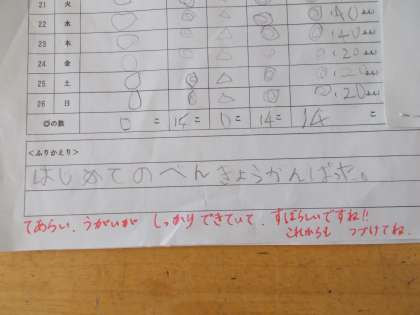 21 火 ○ ○ △ ◎
22 水 ○ ○ △ ◎ ◎ 140
23 木 ○ ○ △ ○ ◎ 140
24 金 ○ ○ △ ○ ◎ 120
25 土 ○ ◎ △ ◎ ◎ 120
26 日 ○ ◎ △ ◎ ◎ 120
◎の数 0 = 15 = 0 = 14 = 14 =
<ふりかえり>
はじめてのべんきょうかんばた。
てあらい、うがいが しっかりできていて、すばらしいですね!!
これからも つづけてね。